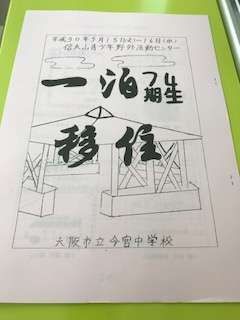 平成30年5月15日(火)~16日(水)
信太山青少年野外活動センター
一泊
74期生
移住
大阪市立今宮中学校